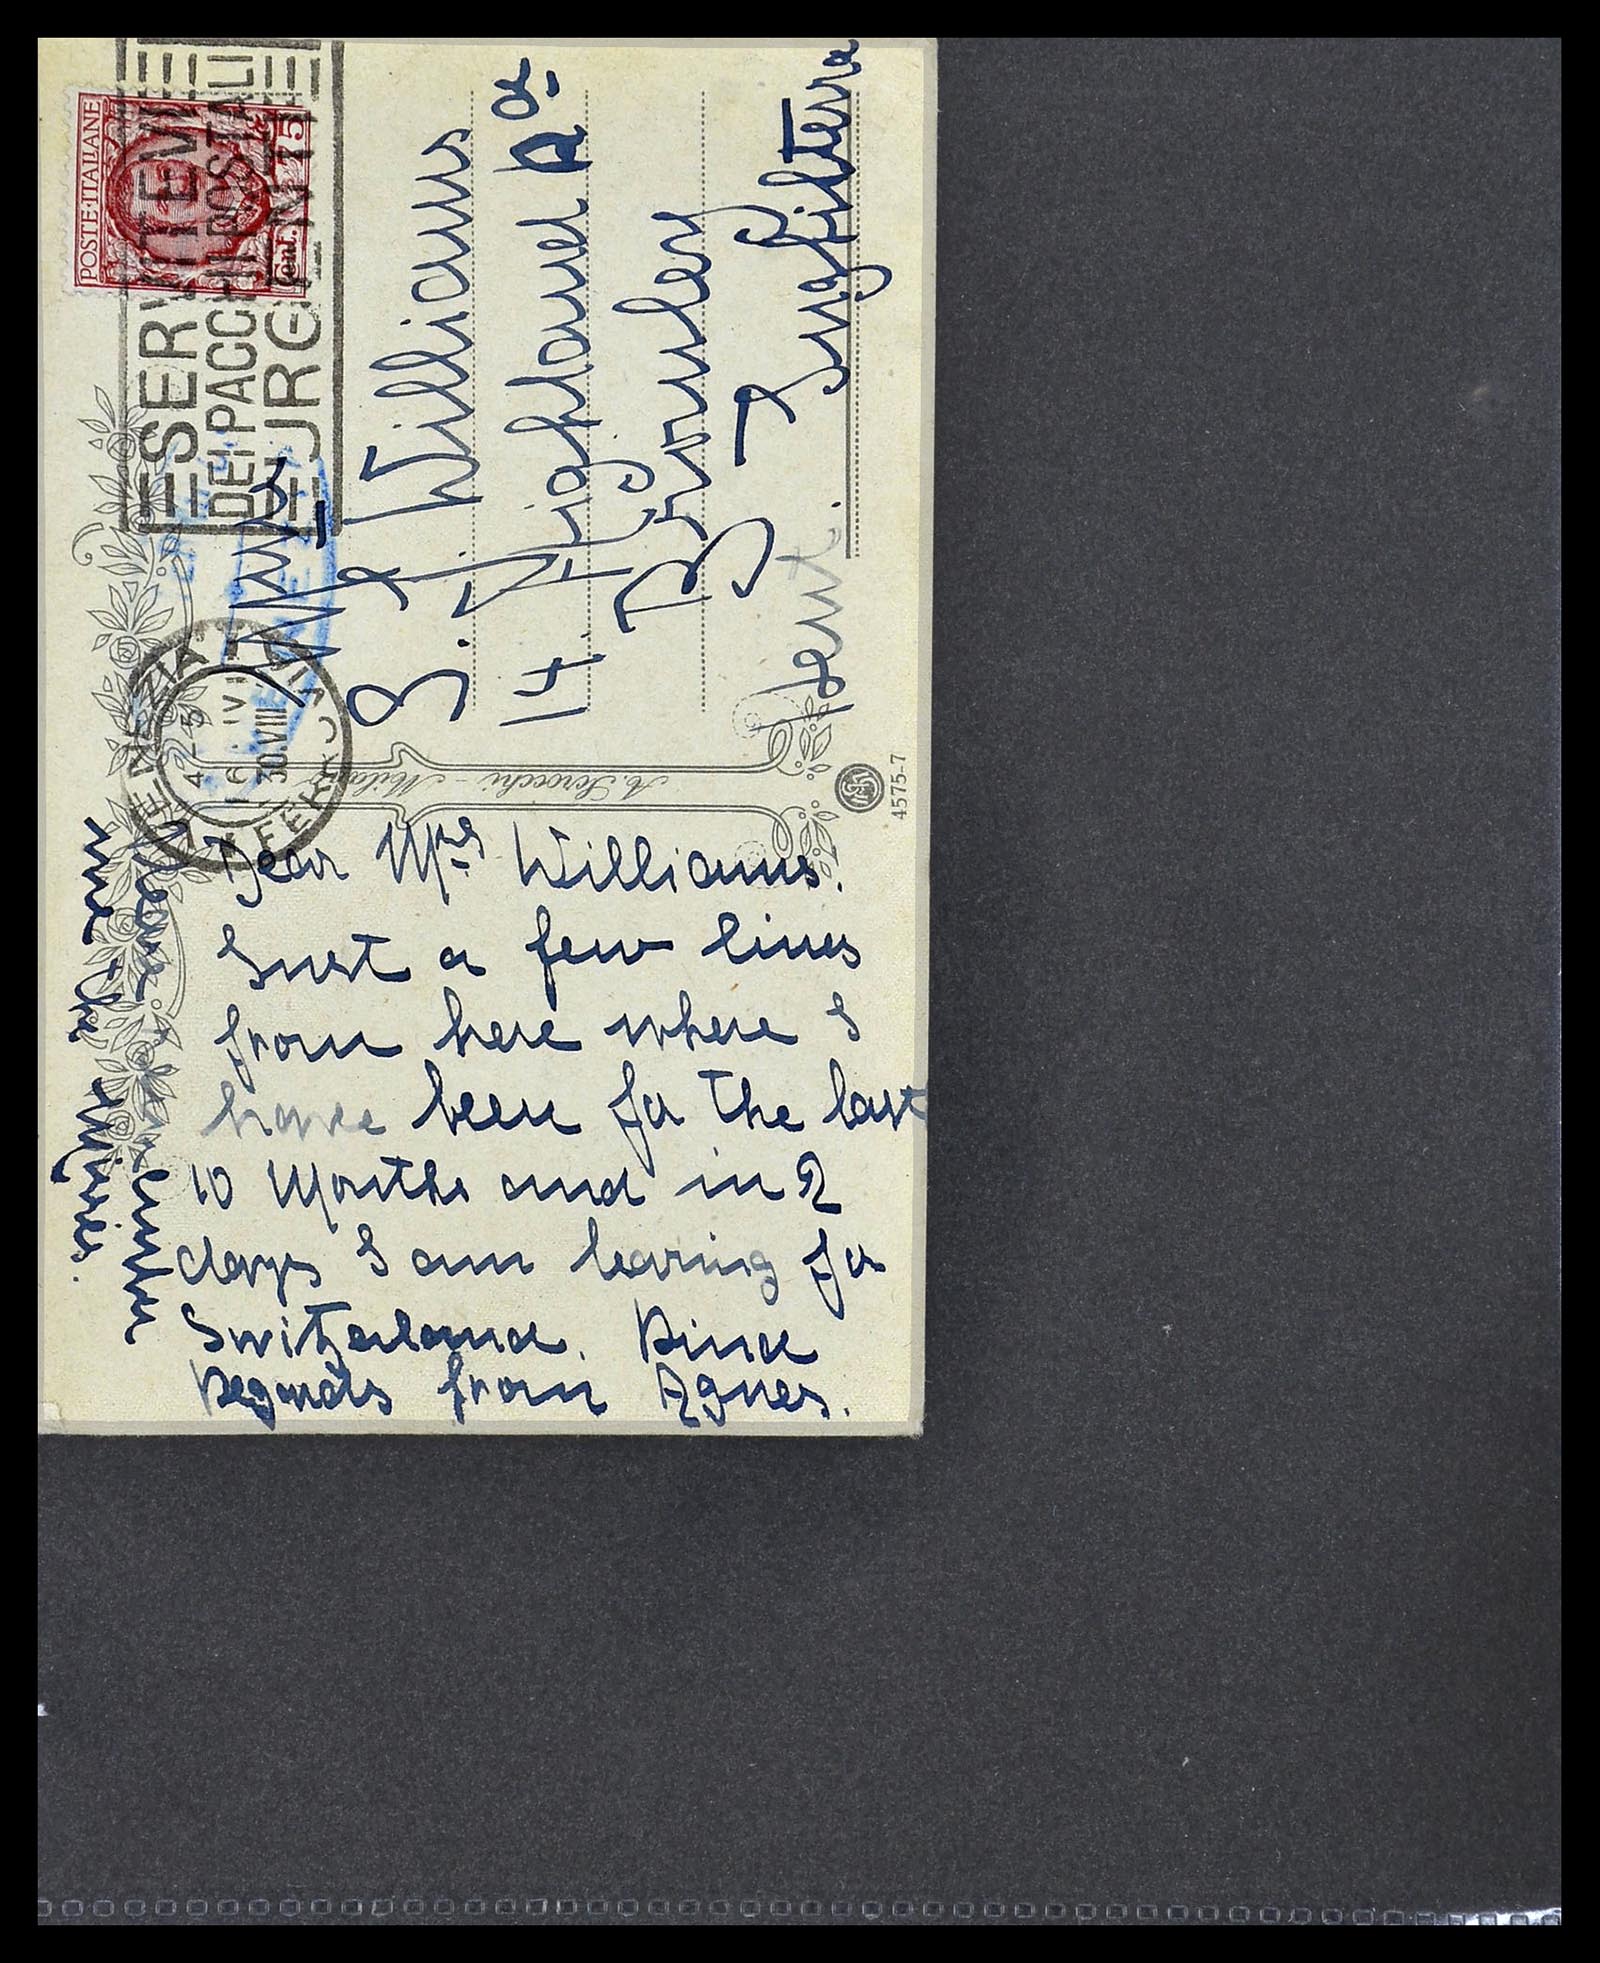 POSTE·ITALIANE
Cent. 75
SERVITEVI
DEI PACCHI POSTALI
URGENTI
VENEZIA
FERROVIA
30.VIII
Mrs
S. J. Williams
14. Highland Rd
Bromley
Kent. Inghilterra
A. Scrocchi - Milano
4575-7
Dear Mrs Williams.
Just a few lines
from here where I
have been for the last
10 Months and in 2
days I am leaving for
Switzerland. Kind
Regards from Agnes.
Love
me the